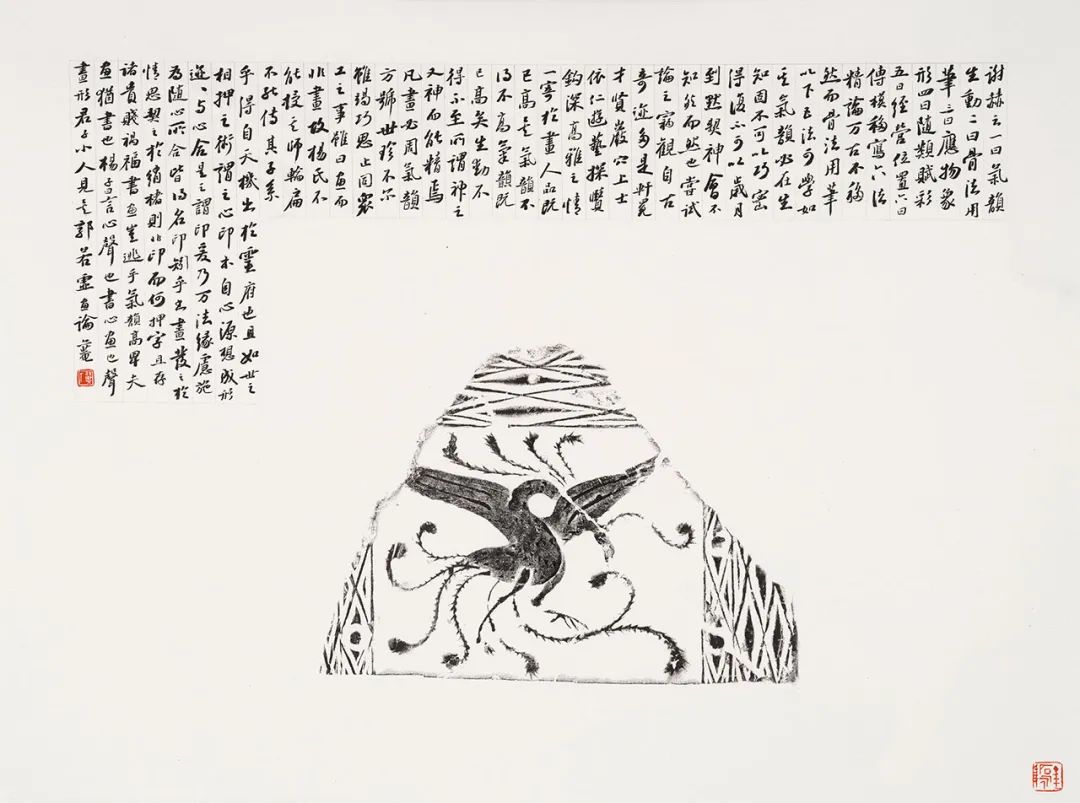 謝赫云一曰氣韻
生動二曰骨法用
筆三曰應物象
形四曰隨類賦彩
五曰經營位置六曰
傳模移寫六法
精論万古不移
然而骨法用筆
以下五法可學如
其氣韻必在生
知固不可以巧密
得復不可以歲月
到默契神會不
知然而然也嘗試
論之竊觀自古
奇迹多是軒冕
才賢巖穴上士
依仁遊藝探賾
鈎深高雅之情
一寄於畫人品既
已高矣氣韻不
得不高氣韻既
已高矣生動不
得不至所謂神之
又神而能精焉
凡畫必周氣韻
方號世珍不尔
雖竭巧思止同眾
工之事雖曰畫而
非畫故楊氏不
能授其師輪扁
不能傳其子系
乎得自天機出於靈府也且如世之
相押之術謂之心印本自心源想成形
迹迹與心合是之謂印爰乃万法緣慮施
為隨心所合皆得名印矧乎書畫發之於
情思契之於綃楮則非印而何押字且存
諸貴賤禍福書畫豈逃乎氣韻高卑夫
畫猶書也楊子言心聲也書心畫也聲
畫形君子小人見矣郭若虛畫論